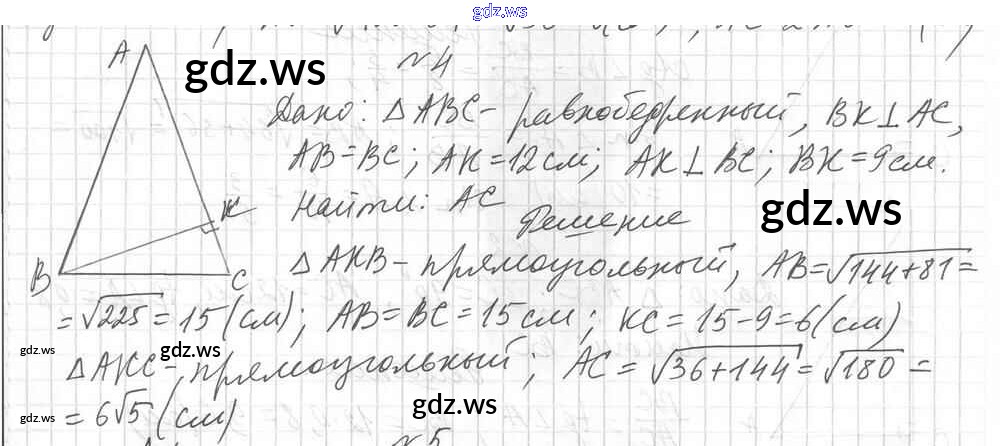 gdz.ws
№4
gdz.ws
Дано: △ABC - равнобедренный, BK⊥AC,
AB=BC; AK=12см; AK⊥BC; BK=9см.
Найти: AC
gdz.ws
Решение
△AKB - прямоугольный, AB=√144+81=
=√225=15(см); AB=BC=15см; KC=15-9=6(см)
gdz.ws
gdz.ws
△AKC - прямоугольный; AC=√36+144=√180=
=6√5(см)
gdz.ws
gdz.ws
№5
A
K
B
C